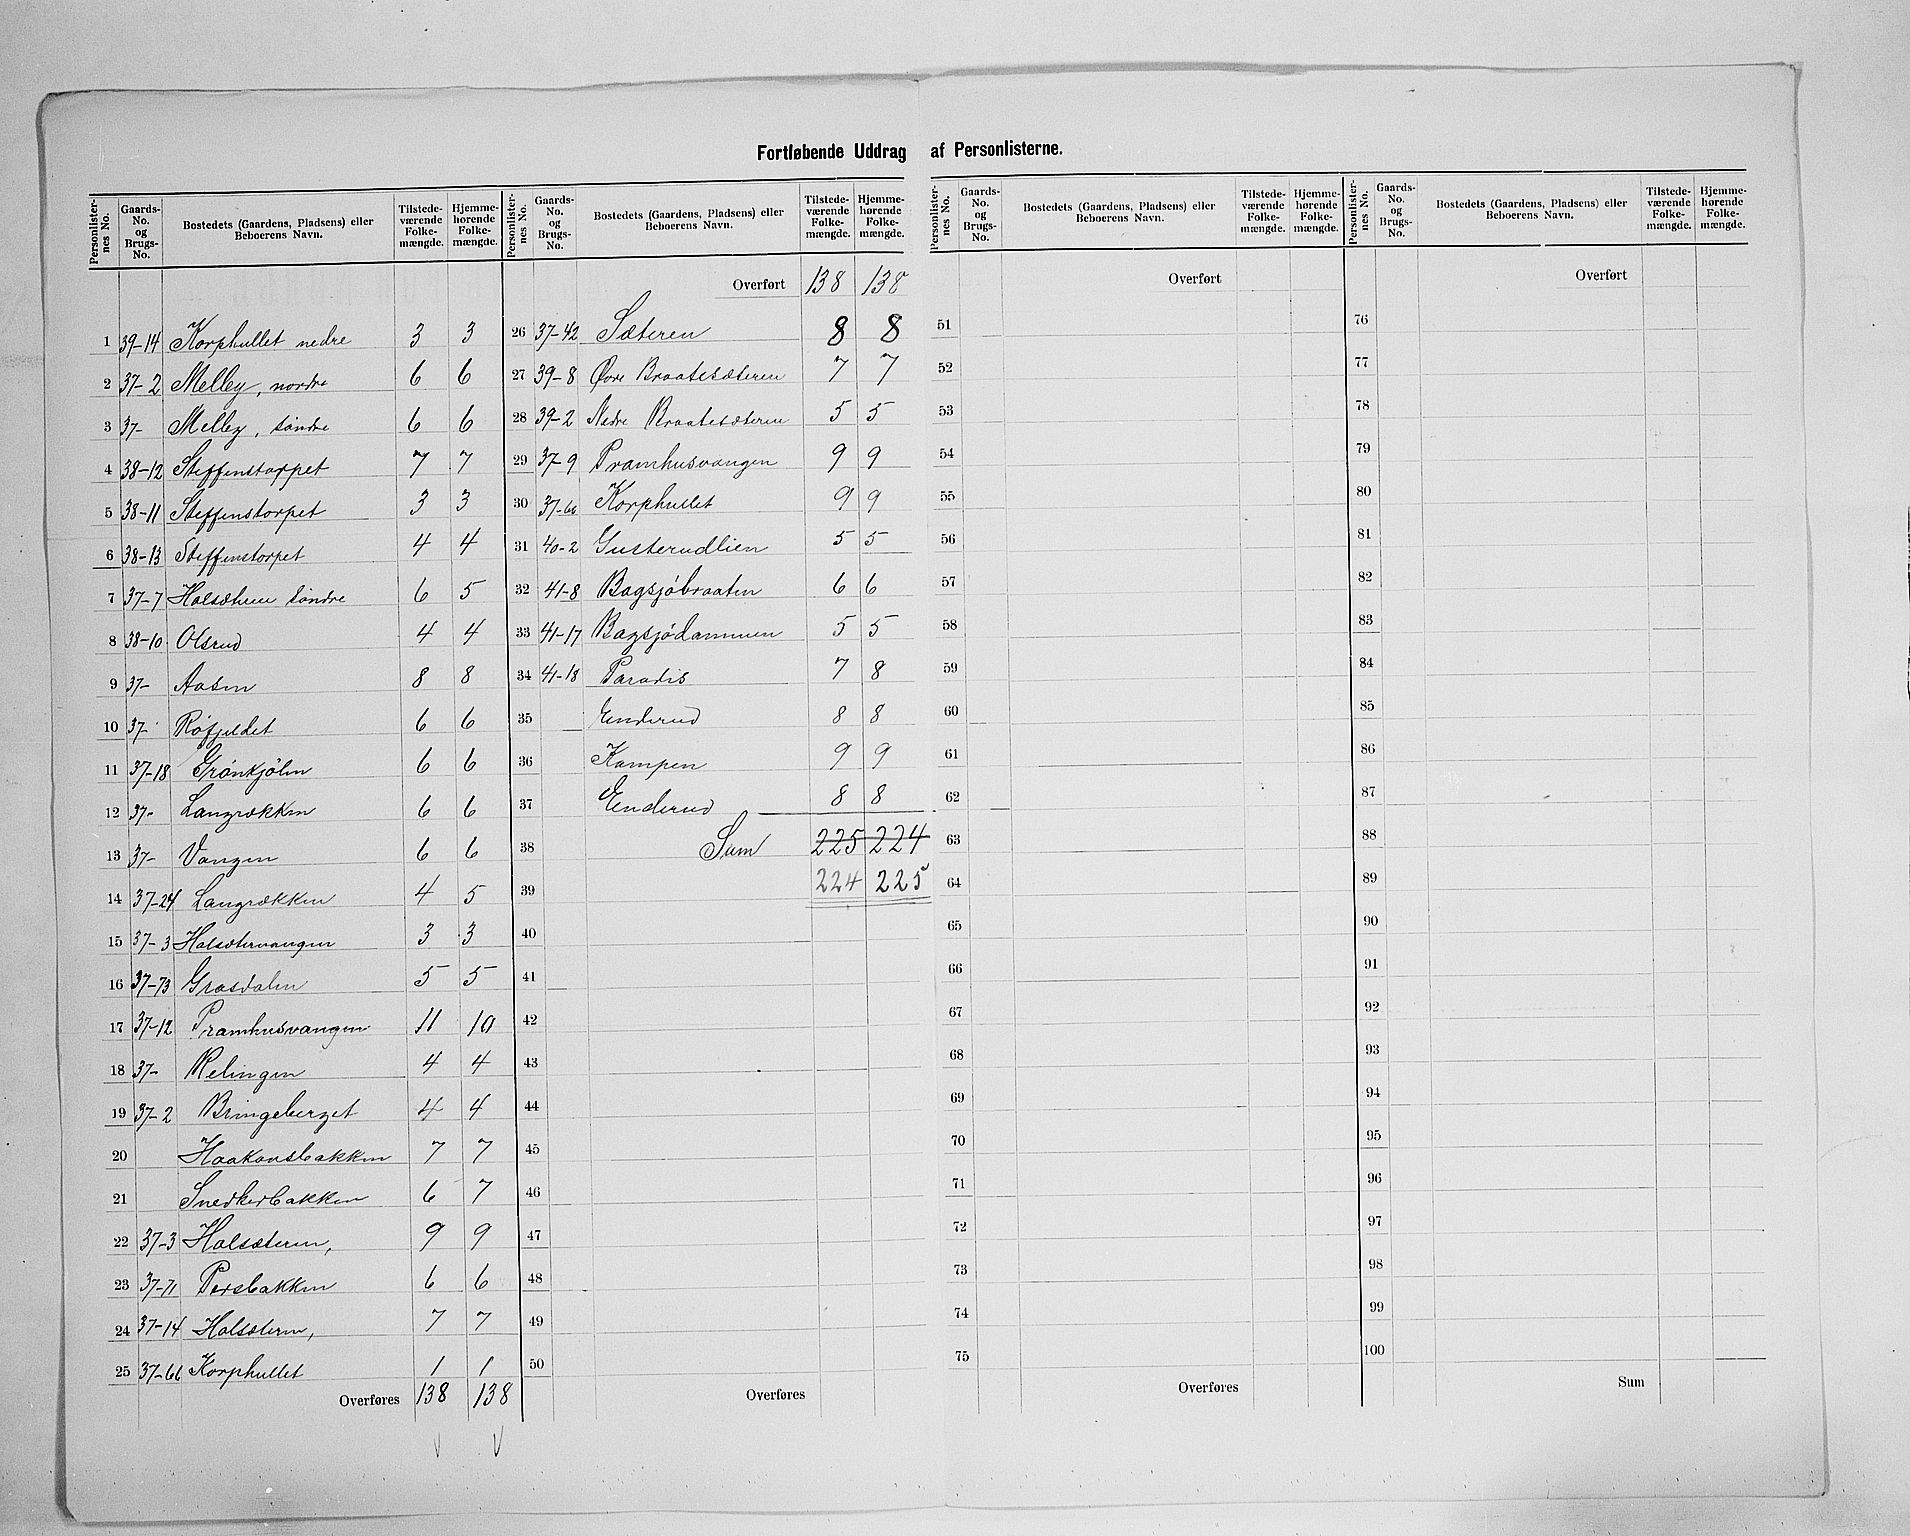 Fortløbende Uddrag af Personlisterne.
Personlister-nes No. | Gaards-No. og Brugs-No. | Bostedets (Gaardens, Pladsens) eller Beboerens Navn. | Tilstede-værende Folke-mængde. | Hjemme-hørende Folke-mængde.
1 39-14 Korphullet nedre 3 3
2 37-2 Melby, nordre 6 6
3 37- Melby, søndre 6 6
4 38-12 Steffenstorpet 7 7
5 38-11 Steffenstorpet 3 3
6 38-13 Steffenstorpet 4 4
7 37-7 Halsæteren søndre 6 5
8 38-10 Olsrud 4 4
9 37- Aasen 8 8
10 37- Røfjeldet 6 6
11 37-18 Grønkjølen 6 6
12 37- Langrækken 6 6
13 37- Vangen 6 6
14 37-24 Langrækken 4 5
15 37-3 Halsætervangen 3 3
16 37-73 Grasdalen 5 5
17 37-12 Pramhusvangen 11 10
18 37- Relingen 4 4
19 37-2 Bringeberget 4 4
20 Haakonsbakken 7 7
21 Snedkerbakken 6 7
22 37-3 Halsæteren, 9 9
23 37-71 Persbakken 6 6
24 37-14 Halsæteren, 7 7
25 37-66 Korphullet 1 1
Overføres 138 138
Personlister-nes No. | Gaards-No. og Brugs-No. | Bostedets (Gaardens, Pladsens) eller Beboerens Navn. | Tilstede-værende Folke-mængde. | Hjemme-hørende Folke-mængde.
Overført 138 138
26 37-42 Sæteren 8 8
27 39-8 Øvre Braatesæteren 7 7
28 39-2 Nedre Braatesæteren 5 5
29 37-9 Pramhusvangen 9 9
30 37-66 Korphullet 9 9
31 40-2 Gusterudlien 5 5
32 41-8 Bagsjöbraaten 6 6
33 41-17 Bagsjödammen 5 5
34 41-18 Paradis 7 8
35 Enderud 8 8
36 Kampen 9 9
37 Enderud 8 8
38 Sum 225 224
39 224 225
40
41
42
43
44
45
46
47
48
49
50
Overføres
Personlister-nes No. | Gaards-No. og Brugs-No. | Bostedets (Gaardens, Pladsens) eller Beboerens Navn. | Tilstede-værende Folke-mængde. | Hjemme-hørende Folke-mængde.
Overført
51
52
53
54
55
56
57
58
59
60
61
62
63
64
65
66
67
68
69
70
71
72
73
74
75
Overføres
Personlister-nes No. | Gaards-No. og Brugs-No. | Bostedets (Gaardens, Pladsens) eller Beboerens Navn. | Tilstede-værende Folke-mængde. | Hjemme-hørende Folke-mængde.
Overført
76
77
78
79
80
81
82
83
84
85
86
87
88
89
90
91
92
93
94
95
96
97
98
99
100
Sum